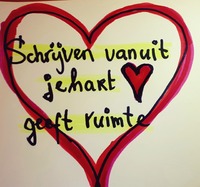 Schrijven vanuit
je hart
geeft ruimte